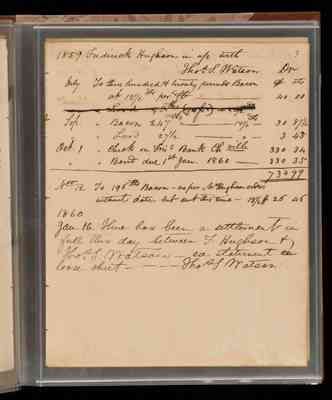 1859 Frederick Hughson in a/c with 3
Thos. S. Watson Dr
July To three hundred & twenty pounds Bacon $ cts
at 12 1/2 cts 40 00
Sep " Bacon 247 lbs 12 1/2 cts 30 87 1/2
" Lard 27 1/2 3 43
Oct 1 " Check on Bank Ch ville 330 34
" Bond due 1st Jan. 1860 330 35
734 99
To 196 lbs Bacon as per
without date but 25 45
1860
Jan 16. There has been a settlement in
full this day between F. Hughson &
Thos. S Watson statement on
loose sheet - Thos S Watson